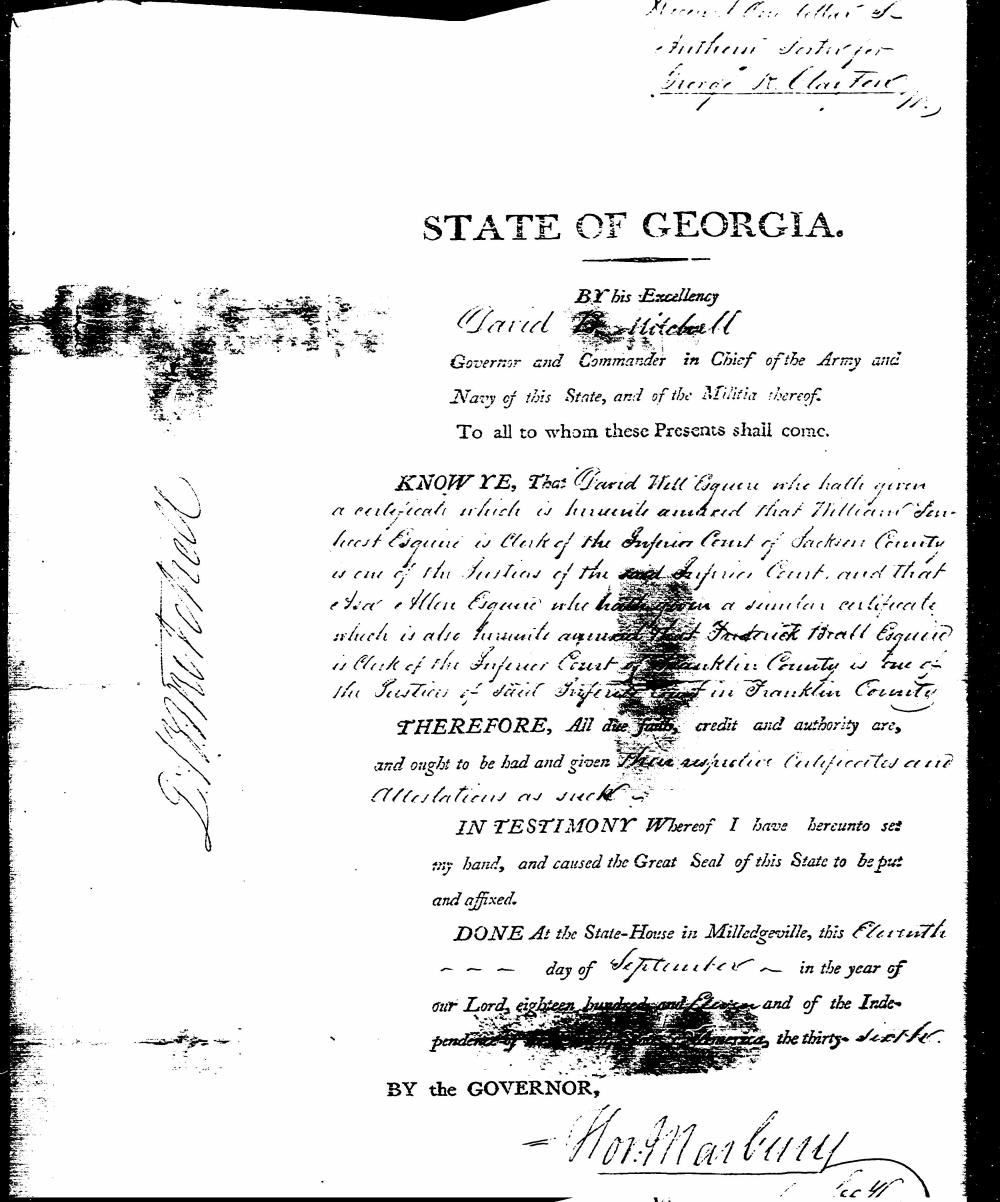 Received One dollar
Anthony Porter for
George R. Clayton
STATE OF GEORGIA.
BY his Excellency
David B. Mitchell
Governor and Commander in Chief of the Army and
Navy of this State, and of the Militia thereof.
To all to whom these Presents shall come.
KNOW YE, That David Hill Esquire who hath given
a certificate which is hereunto annexed that William
Esquire is Clerk of the Inferior Court of Jackson County
is one of the Justices of the said Inferior Court, and that
Asa Allen Esquire who hath given a similar certificate
which is also hereunto annexed that Frederick Beall Esquire
is Clerk of the Inferior Court of Franklin County is one of
the Justices of said Inferior Court in Franklin County
THEREFORE, All due faith, credit and authority are,
and ought to be had and given their respective Certificates and
Attestations as such
IN TESTIMONY Whereof I have hereunto set
my hand, and caused the Great Seal of this State to be put
and affixed.
DONE At the State-House in Milledgeville, this Eleventh
- - - day of September ~ in the year of
our Lord, eighteen hundred and Eleven and of the Inde-
pendence of the United States of America, the thirty- sixth.
BY the GOVERNOR,
Hor. Marbury
Secy
D. B. Mitchell